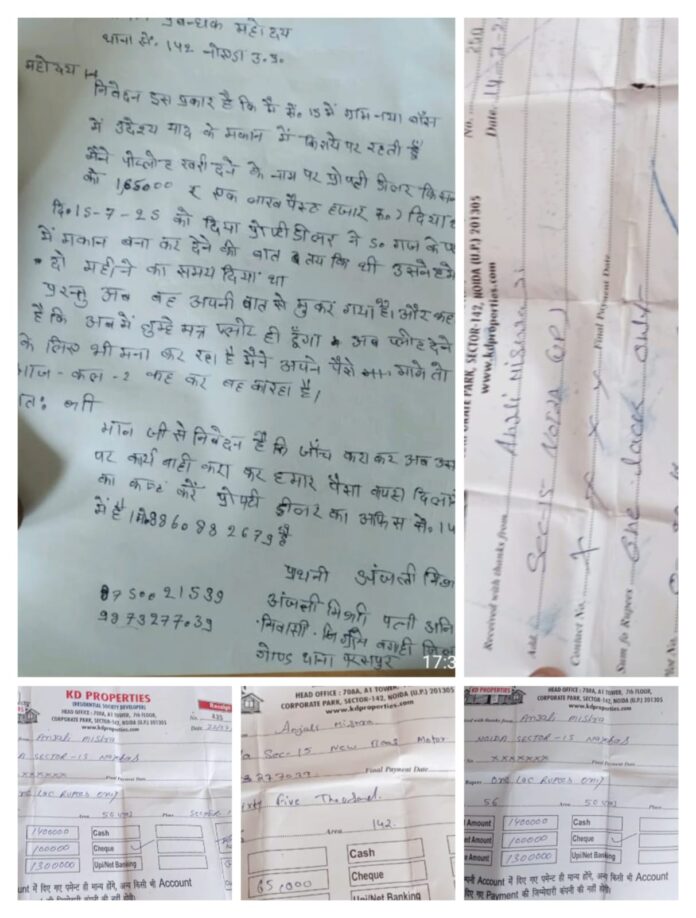 प्रबन्धक महोदय
थाना से. 142 नोएडा उ.प्र.
महोदय
निवेदन इस प्रकार है कि मै से. 15 में ग्राम-नया बाँस
में उद्देश्य याद के मकान में किराये पर रहती हूँ
मैंने पोलोट खरी देने के नाम पर प्रोपटी डीलर
को 1,65000 ₹ एक लाख पैंसठ हजार रू.) दिया
दि. 15-7-25 को दिया प्रोपटी डीलर ने 50 गज के
में मकान बना कर देने की बात तय कि थी उसने हमे
दो महीने का समय दिया था
परन्तु अब वह अपनी बात से मुकर गया है। और कह
है कि अब में तुम्हे मत्र प्लोट ही दूँगा अब प्लोट देने
के लिए भी मना कर रहा है मैंने अपने पैसे मागे तो
आज-कल-2 कह कर बह का रहा है।
मान जी से निवेदन है कि जाँच करा कर अब उस
पर कार्य वाही करा कर हमार पैसा वापस दिलाने
का कष्ट करें प्रोपटी डीलर का आफिस से. 14
में है। मो. 8860882679 है
प्रथनी अंजली मिश्रा
8750021539
9973277039
अंजली मिश्रा पत्नी अनि
निवासी
थाना परसपुर
17:3
No. 250
Date
ORATE PARK, SECTOR-142, NOIDA (U.P.) 201305
www.kdproperties.com
Received with thanks from Anjali Mishra Ji
Add. Sec-15 Noida (U.P.)
Contact No. X X X X Final Payment Date
Sum fo Rupees One Lack Only
Plot No.
KD PROPERTIES
(RESIDENTIAL SOCIETY DEVELOPER)
HEAD OFFICE : 708A, A1 TOWER, 7th FLOOR,
CORPORATE PARK, SECTOR-142, NOIDA (U.P.) 201305
www.kdproperties.com
Receipt
No. 435
Date
Anjali Mishra
SECTOR-15 Nayabas
XXXXXXX Final Payment Date
One Lac Rupees only
Area 50 Plot
1400000 Cash
100000 Cheque
1300000 Upi/Net Banking
में दिए गए पमेन्ट ही मान्य होंगे, अन्य किसी भी Account
HEAD OFFICE : 708A, A1 TOWER,
CORPORATE PARK, SECTOR-142, NOIDA (U.P.) 201305
www.kdproperties.com
Anjali Mishra
Sec-15 New Motor
Final Payment Date
Five Thousand
Area 142
Cash
65000 Cheque
Upi/Net Banking
KD PROPERTIES
HEAD OFFICE : 708A, A1 TOWER, 7th FLOOR,
CORPORATE PARK, SECTOR-142, NOIDA (U.P.) 201305
www.kdproperties.com
with thanks from Anjali Mishra
NOIDA SECTOR-15 Nayabas
XXXXXXXX Final Payment Date
Rupees One Lac Rupees only
56 Area 50 Plot
Amount 1400000 Cash
Amount 100000 Cheque
Amount 1300000 Upi/Net Banking
Account में दिए गए पमेन्ट ही मान्य होंगे, अन्य किसी भी Account
दिए गए Payment की जिम्मेदारी कंपनी की नहीं होगी।